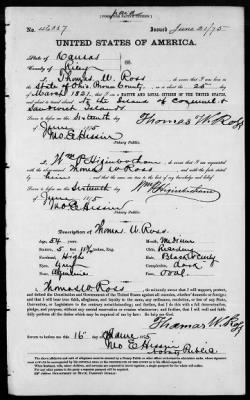 No. 46057 Issued June 21/75
UNITED STATES OF AMERICA.
State of Kansas
County of Riley } ss.
I, Thomas W. Ross, do swear that I was born in the
State of Ohio, Brown County, on or about the 25 day
of March 1821, that I am a NATIVE AND LOYAL CITIZEN OF THE UNITED STATES,
and about to travel to the Island of Cozumel &
Sandwich Islands
Sworn to before me this Sixteenth day Thomas W. Ross
of June 1875
Geo. E. Hessin
Notary Public.
I, Wm. P. Higinbotham, do swear that I am acquainted
with the above named Thomas W Ross and with the facts above stated by
him, and that the same are true to the best of my knowledge and belief.
Sworn to before me this Sixteenth day Wm P Higinbotham
of June 1875
Geo. E. Hessin
Notary Public.
Description of Thomas W. Ross.
Age, 54 years. Mouth, Medium
Stature, 5 feet, inches, Eng. Chin, Receding
Forehead, High Hair, Black & Curly
Eyes, Grey Complexion, dark
Nose, Aquiline Face, oval
I, Thomas W Ross, do solemnly swear that I will support, protect, and
defend the Constitution and Government of the United States against all enemies, whether domestic or foreign;
and that I will bear true faith, allegiance, and loyalty to the same, any ordinance, resolution, or law of any State,
Convention, or Legislature to the contrary notwithstanding; and further, that I do this with a full determination,
pledge, and purpose, without any mental reservation or evasion whatsoever; and further, that I will well and faith-
fully perform all the duties which may be required of me by law. So help me God.
Thomas W. Ross
Sworn to before me this 16th day of June 1875
Geo. E. Hessin
Notary Public